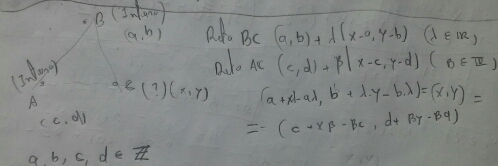 B (Intero)
(a, b)
(Intero)
A
(c, d)
C (?) (x, y)
a, b, c, d ∈ ℤ
Retta BC (a, b) + λ(x-a, y-b) (λ ∈ ℝ)
Retta AC (c, d) + β(x-c, y-d) (β ∈ ℝ)
(a + xλ - aλ, b + λ·y - b·λ) = (x, y) =
= (c + xβ - βc, d + βy - βd)